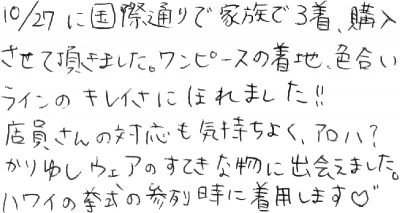 10/27に国際通りで家族で3着、購入
させて頂きました。ワンピースの着地、色合い
ラインのキレイさにほれました!!
店員さんの対応も気持ちよく、アロハ?
かりゆしウェアのすてきな物に出会えました。
ハワイの挙式の参列時に着用します♡